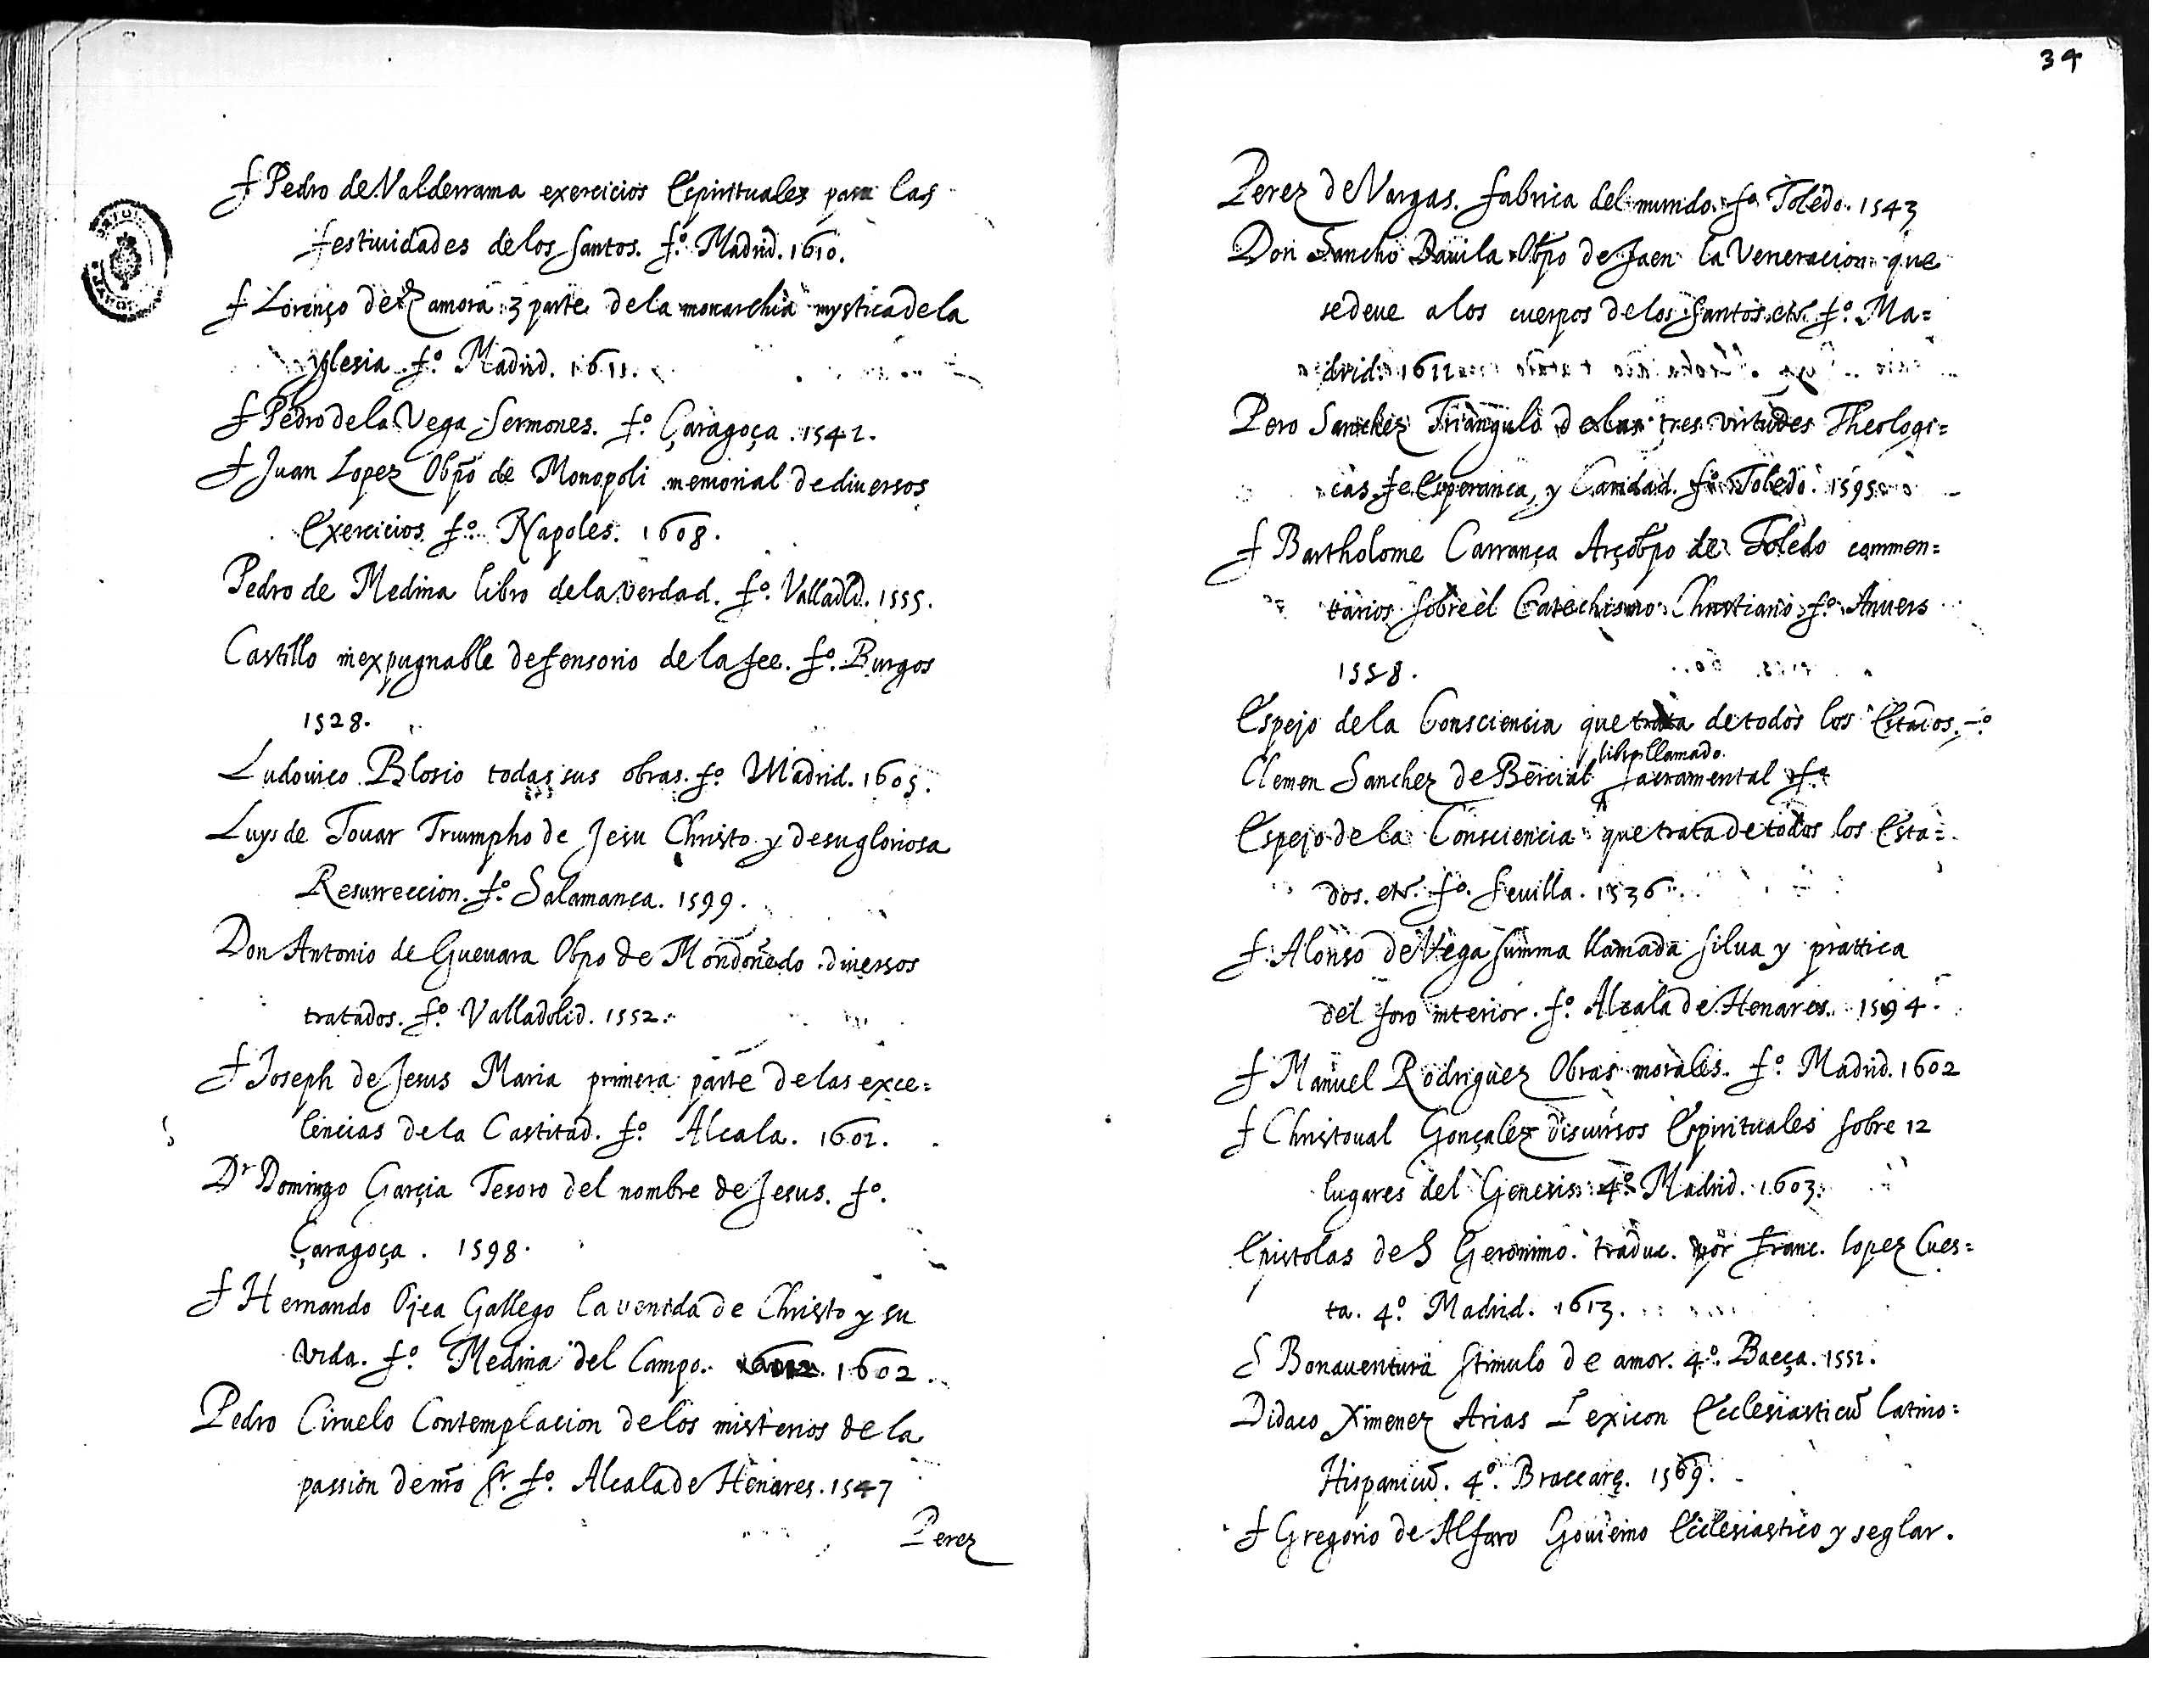 f Pedro de Valderrama exercicios Espirituales para las
festiuidades de los santos. fº. Madrid. 1610.
f Lorenço de Zamora 3 parte de la monarchia mystica de la
yglesia. fº. Madrid. 1611.
f Pedro de la Vega Sermones. fº. Çaragoça. 1542.
f Juan Lopez Obpo de Monopoli memorial de diuersos
Exercicios. fº. Napoles. 1608.
Pedro de Medina libro de la verdad. fº. Valladld. 1555.
Castillo inexpugnable defensorio de la fee. fº. Burgos
1528.
Ludouico Blosio todas sus obras. fº. Madrid. 1605.
Luys de Touar Triumpho de Jesu Christo y de su gloriosa
Resurreccion. fº. Salamanca. 1599.
Don Antonio de Gueuara Obpo de Mondoñedo diuersos
tratados. fº. Valladolid. 1552.
f Joseph de Jesus Maria primera parte de las exce=
lencias de la Castitad. fº. Alcala. 1601.
Dr Domingo Garçia Tesoro del nombre de Jesus. fº.
Çaragoça. 1598.
f Hernando Ojea Gallego la venida de Christo y su
vida. fº. Medina del Campo. 1602.
Pedro Ciruelo Contemplacion de los misterios de la
passion de nro Sr. fº. Alcala de Henares. 1547
Perez
34
Perez de Vargas. fabrica del mundo. fº. Toledo. 1543
Don Sancho Dauila Obpo de Jaen la Veneracion que
se deue a los cuerpos de los santos. etc. fº. Ma=
drid. 1611
Pero Sanchez Triangulo de las tres virtudes Theologi=
cas fe Esperanca, y Caridad. fº. Toledo. 1595
f Bartholome Carrança Arçobpo de Toledo commen=
tarios sobre el Catechismo Christiano fº. Anuers
1558.
Espejo de la Consciencia que trata de todos los Estados. fº
Clemen Sanchez de Bercial libro llamado sacramental fº
Espejo de la Consciencia que trata de todos los Esta=
dos. etc. fº. Seuilla. 1536.
f Alonso de Vega summa llamada silua y prattica
del foro interior. fº. Alcala de Henares. 1594.
f Manuel Rodriguez Obras morales. fº. Madrid. 1602
f Christoual Gonçalez discursos Espirituales sobre 12
lugares del Genesis. 4º. Madrid. 1603.
Epistolas de S Geronimo. traduc. por Franc. lopez Cues=
ta. 4º. Madrid. 1613.
S Bonauentura stimulo de amor. 4º. Baeça. 1551.
Didaco Ximenez Arias Lexicon Ecclesiasticū latino=
Hispanicū. 4º. Braccarę. 1569.
f Gregorio de Alfaro Gouierno Ecclesiastico y seglar.